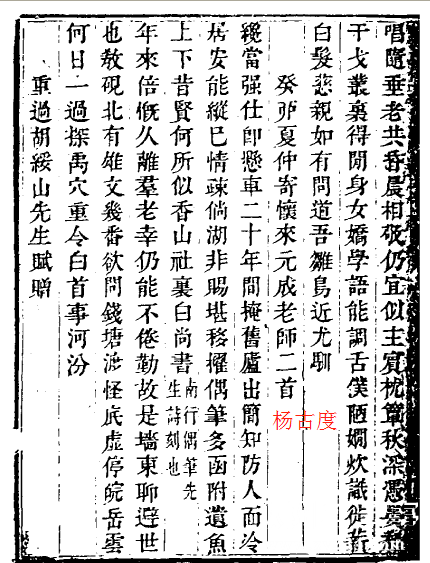 唱隨垂老共昏晨相敬仍宜似主賓枕簟秋深憑晏
干戈叢裏得閒身女嬌學語能調舌僕陋嫺炊識徙薪
白髮慈親如有問道吾雛鳥近尤馴
癸卯夏仲寄懷來元成老師二首
纔當强仕卽懸車二十年間掩舊廬出簡知防人面冷
居安能縱巳情疎倘湖非賜堪移櫂偶筆多函附遺魚
上下昔賢何所似香山社裏白尚書
南行偶筆先
生詩刻也
年來倍慨久離羣老幸仍能不倦勤故是墻東聊避世
也教硯北有雄文幾番欲問錢塘渉怪底虚停皖岳雲
何日一過探禹穴重令白首事河汾
重過胡綏山先生賦贈
杨古度